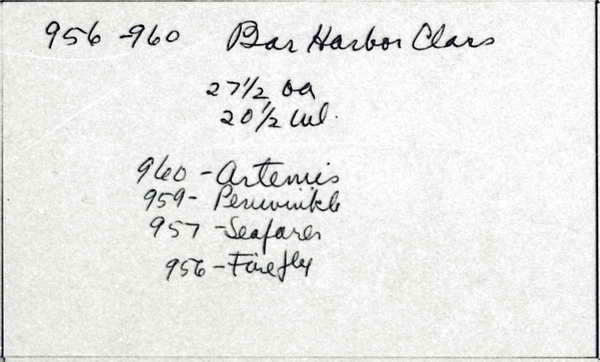 956-960 Bar Harbor Class
27 1/2 oa
20 1/2 wl.
960 - Artemis
959 - Periwinkle
957 - Seafarer
956 - Firefly